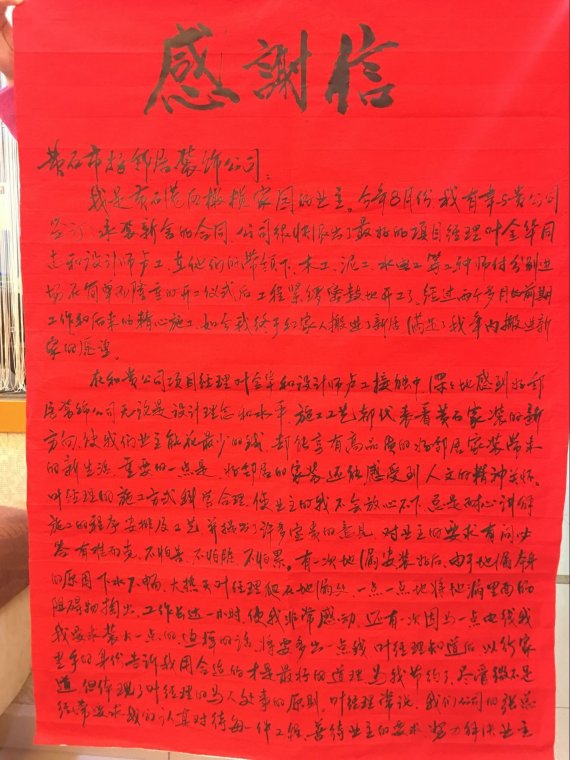 感謝信
黄石市好邻居装饰公司:
我是黄石港区橄榄家园的业主。今年8月份我有幸与贵公司
签订了来装新会的合同。公司很快派出了最好的项目经理叶金华同
志和设计师卢工,在他们的带领下,木工、泥工、水电工等工种师付分别进
场,在简单而隆重的开工仪式后,工程紧锣密鼓地开工了。经过两个多月的前期
工作和后来的精心施工,如今我终于和家人搬进了新居,满足了我年内搬进新
家的愿望。
在和贵公司项目经理叶金华和设计师卢工接触中,深深地感到好邻
居装饰公司无论是设计理念和水平,施工工艺都代表着黄石家装的新
方向,使我们业主能花最少的钱,却能享有高品质的好邻居家装带来
的新生活。重要的一点是,好邻居的家装还能感受到人文的精神关怀。
叶经理的施工方式科学合理,使业主的我不会放心不下,总是耐心讲解
施工的程序安排及工艺,并提出了许多宝贵的意见,对业主的要求有问必
答,有难而克,不怕苦、不怕脏、不怕累。有一次地漏安装好后,由于地漏本身
的原因下水不畅,大热天叶经理爬在地漏处,一点一点地将地漏里面的
阻碍物掏出,工作长达一小时,使我非常感动。还有一次因为一点电线我
我要求装大一点的
选择的话,将要多出一点钱,叶经理知道后,以行家
里手的身份告诉我用合适的才是最好的道理,为我节约了,尽管微不足
道,但体现了叶经理的为人处事的原则。叶经理常说,我们公司的张总
经常要求我们认真对待每一件工程,善待业主的要求,努力解决业主